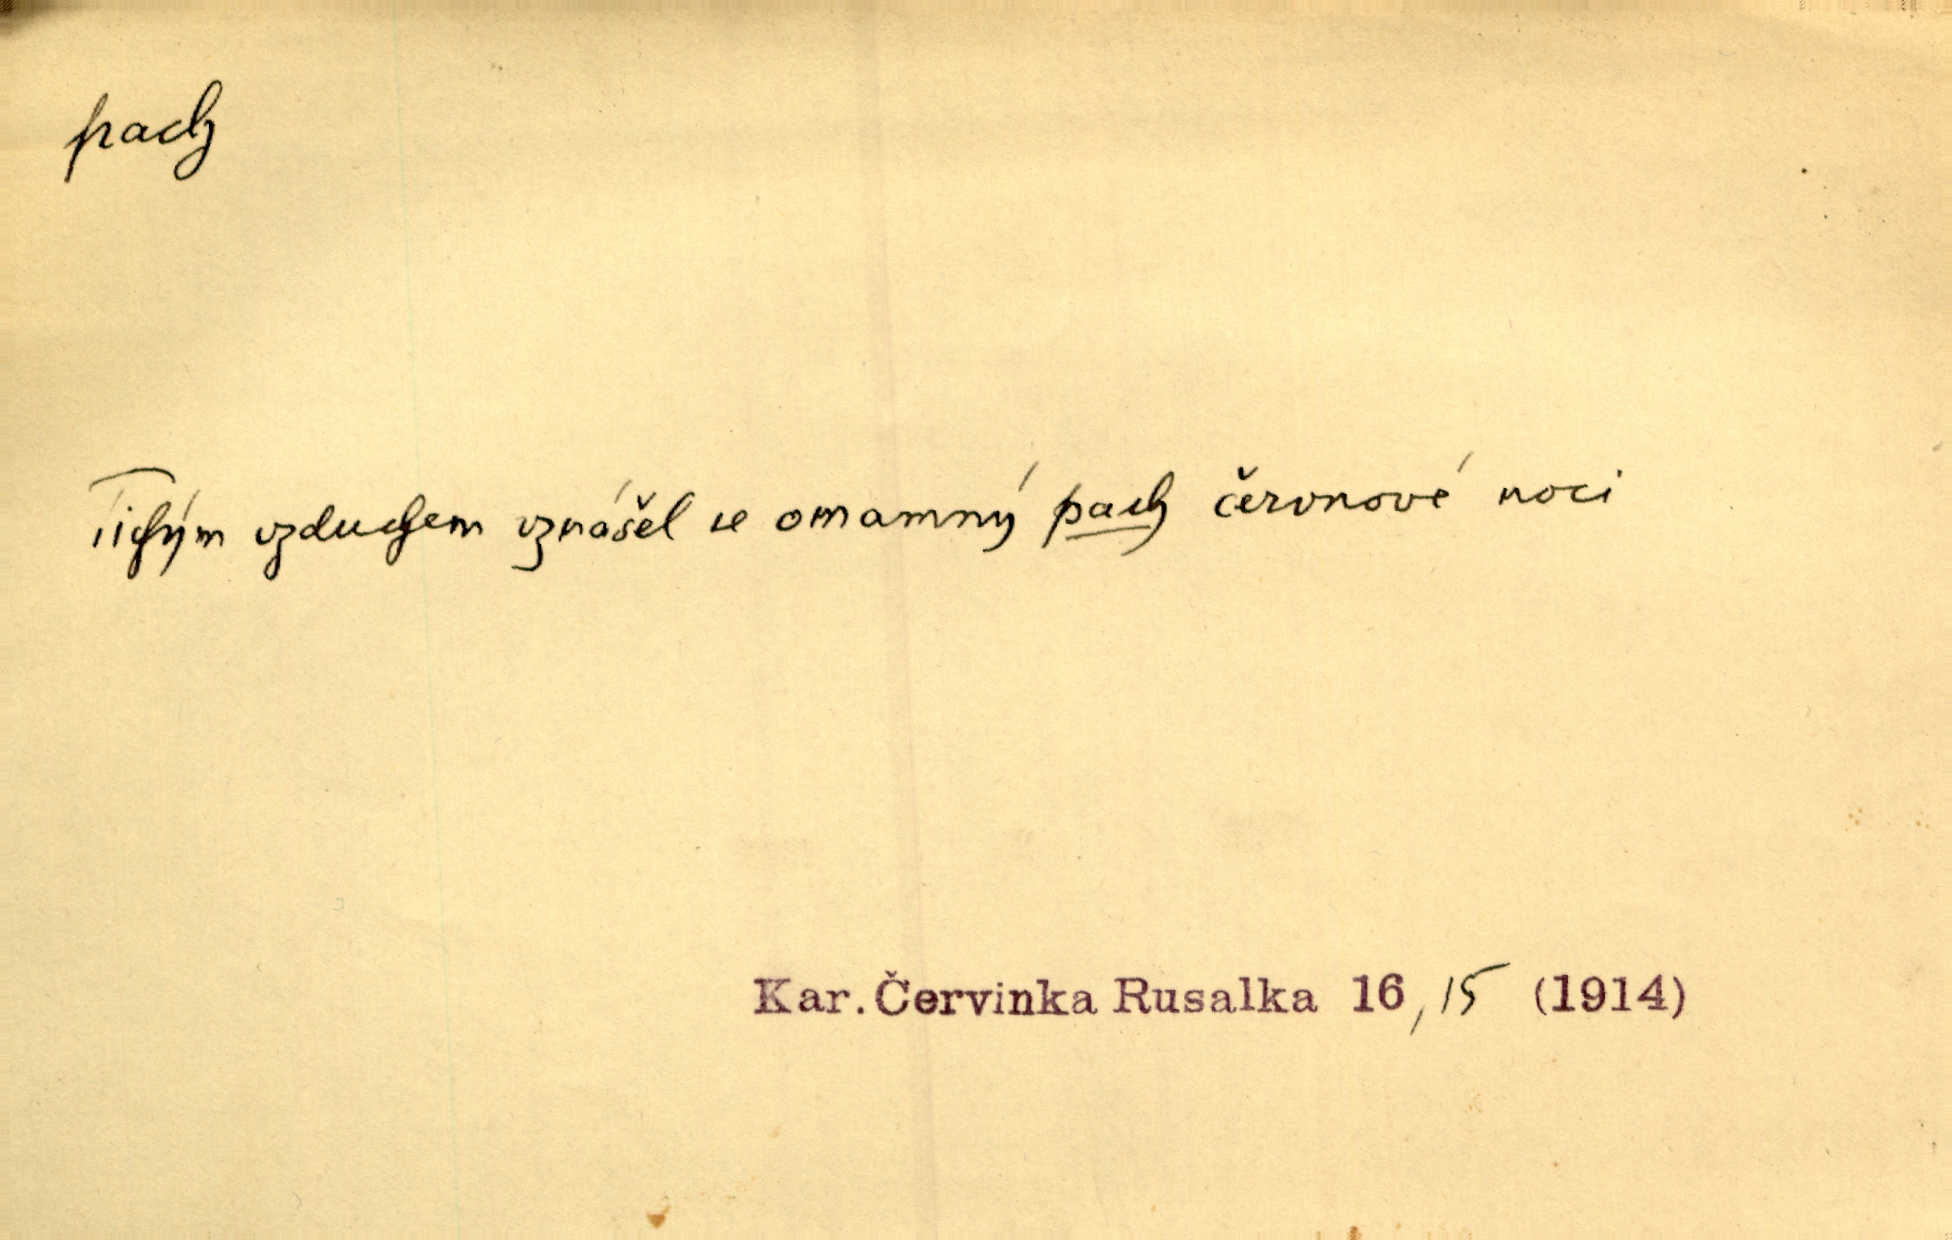 pach
Tichým vzduchem vznášel se omamný pach červnové noci
Kar. Červinka Rusalka 16, 15 (1914)